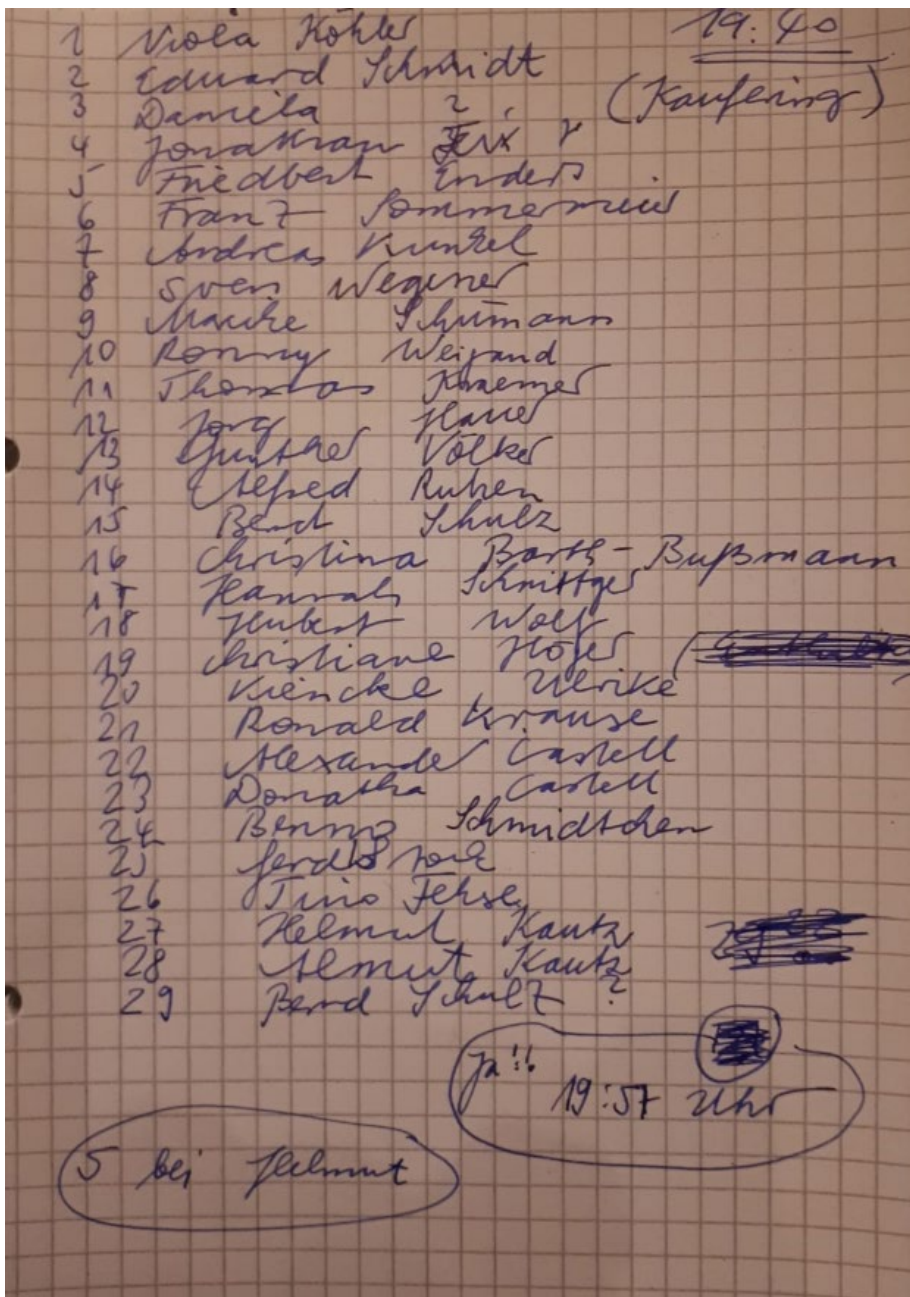 19:40
1 Viola Köhler
2 Eduard Schmidt
(Kaufering)
3 Daniela ?
4 Jonathan Feix ?
5 Friedbert Enders
6 Franz Sommermeier
7 Andreas Kunkel
8 Sven Wegener
9 Maike Schumann
10 Ronny Weigand
11 Thomas Kraemer
12 Jörg Hauer
13 Günther Völker
14 Alfred Ruben
15 Bernd Schulz
16 Christina Barth-Bußmann
17 Hannah Schnittger
18 Hubert Wolf
19 Christiane Höfer
20 Kiencke, Ulrike
21 Ronald Krause
22 Alexander Castell
23 Donatha Castell
24 Benno Schmidtchen
25
26 Tino Fehse
27 Helmut Kautz
28 Almut Kautz
29 Bernd Schulz ?
ja!!
19:57 Uhr
5 bei Helmut